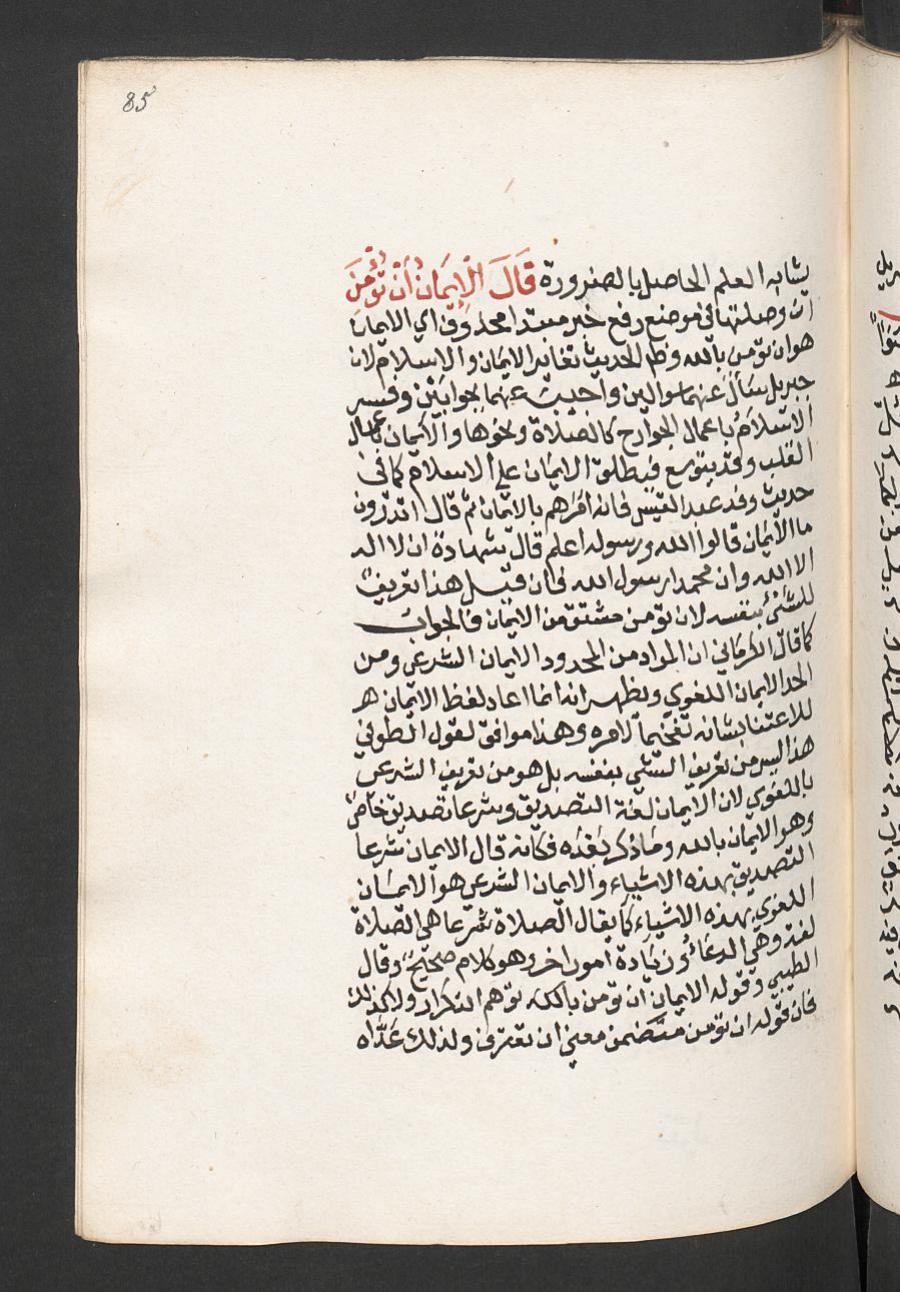 85
يشابه العلم الحاصل بالضرورة قَالَ الْإِيمَانُ أَنْ تُؤْمِنَ
ان وصلتها في موضع رفع خبر مبتدا محذوف اي الايمان
هوان تؤمن بالله وظاهر الحديث تغاير الايمان والاسلام لان
جبريل سأل عنهما سوالين واجيب عنهما بجوابين وفسر
الاسلام باعمال الجوارح كالصلاة ونحوها والايمان باعمال
القلب وقد يتوسع فيطلق الايمان على الاسلام كما في
حديث وفد عبد القيس فانه امرهم بالايمان ثم قال اتدرون
ما الايمان قالوا الله ورسوله اعلم قال شهادة ان لا اله
الا الله وان محمدا رسول الله فان قيل هذا تعريف
للشئ بنفسه لان تؤمن مشتق من الايمان فالجواب
كما قال الكرماني ان المراد من المحدود الايمان الشرعي ومن
الحد الايمان اللغوي ويظهر انه انما اعاد لفظ الايمان
للاعتنا بشانه تفخيما لامره وهذا موافق لقول الطوفي
هذا ليس من تعريف الشئ بنفسه بل هو من تعريف الشرعي
باللغوي لان الايمان لغة التصديق وشرعا تصديق خاص
وهو الايمان بالله وما ذكر بعده فكانه قال الايمان شرعا
التصديق بهذه الاشياء والايمان الشرعي هو الايمان
اللغوي بهذه الاشياء كما يقال الصلاة شرعا هي الصلاة
لغة وهي الدعاء وزيادة امور اخر وهو كلام صحيح وقال
الطيبي وقوله الايمان ان تؤمن بالله توهم التكرار ولا كذلك
فان قوله ان تؤمن متضمن معني ان تعترف ولذلك عداه